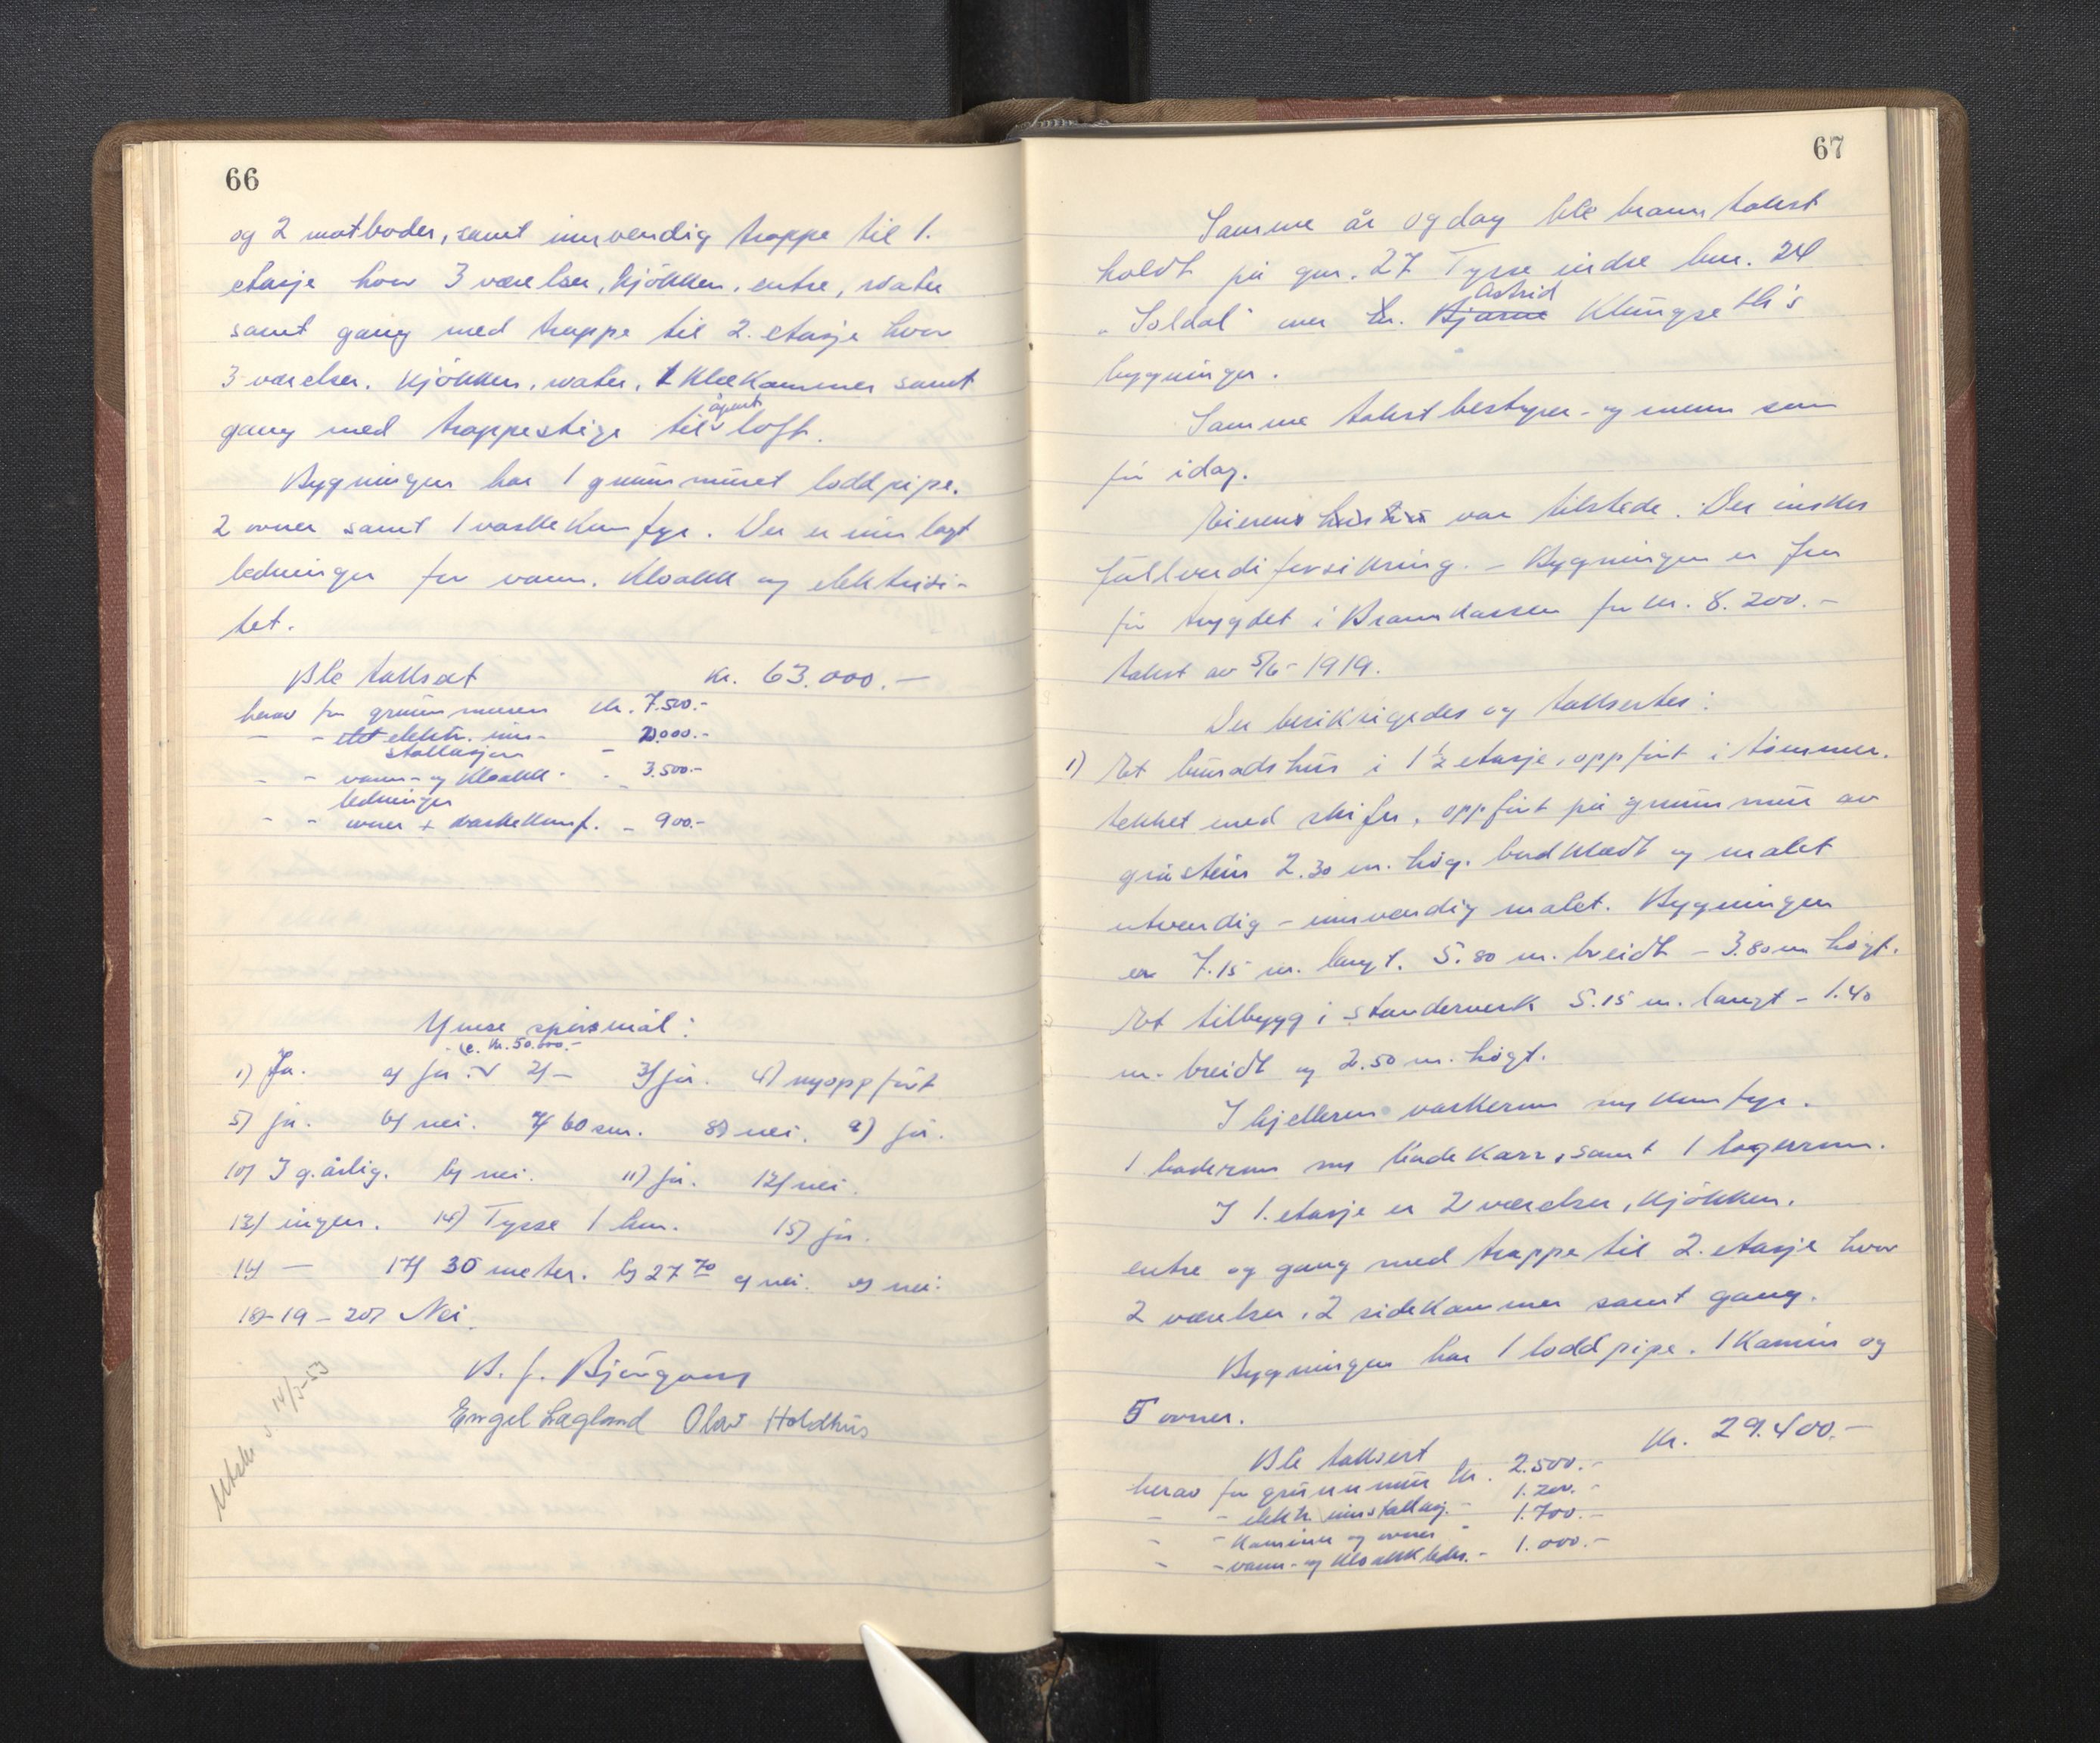 66
og 2 matboder, samt innvendig trappe til 1.
etasje hvor 3 værelser, kjökken, entre, water
samt gang med trappe til 2. etasje hvor
3 værelser, kjökken, water, 1 klekammer samt
åpent
gang med trappestige til loft.
Bygningen har 1 grunnmuret loddpipe.
2 ovner samt 1 vaskekomfyr. Der er innlagt
ledninger for vann, kloakk og elektrisi-
tet.
Ble taksert kr. 63.000.-
herav for grunnmuren kr. 7.500.-
- - elektr. inn-
stallasjon -
- - vann- og kloakk- - 3.500.-
ledninger
- - ovner + vaskekomf. - 900.-
Ymse spörsmål:
c. kr. 50.000.-
1) Ja. a) ja. 2) - 3) ja. 4) nyoppfört
5) ja. 6) nei. 7) 60 cm. 8) nei. 9) ja.
10) 3 g. årlig. b) nei. 11) ja. 12) nei.
13) ingen. 14) Tysse 1 km. 15) ja.
16) - 17) 30 meter. b) 27 70 c) nei. nei.
18-19-20) Nei.
B. J. Björgaas
Engel Lagland Olav Holdhus
Utskr. 14/3-53
67
Samme år og dag ble branntakst
holdt på gnr. 27 Tysse indre bnr. 24
Astrid
"Soldal" over hr. Bjarne Klungseth's
bygninger.
Samme takstbestyrer- og menn som
för idag.
Eierens hustru var tilstede. Der önskes
fullverdiforsikring. - Bygningen er för
trygdet i Brannkassen for kr. 8.200.-
takst av 5/6-1919.
Der besiktigedes og taksertes:
1) Et våningshus i 1 1/2 etasje, oppfört i tömmer.
tekket med skifer, oppfört på grunnmur av
gråstein 2.30 m. hög. bordklædt og malet
utvendig - innvendig malet. Bygningen
er 7.15 m. langt. 5.80 m. breidt - 3.80 m högt.
Et tilbygg i standerverk 5.15 m. langt - 1.40
m. breidt og 2.50 m. högt.
I kjelleren vaskerum m/komfyr.
1 baderum m/badekarr, samt 1 lagerrum.
I 1. etasje er 2 værelser, kjökken.
entre og gang med trappe til 2. etasje hvor
2 værelser, 2 sidekammer samt gang.
Bygningen har 1 loddpipe. 1 kamin og
5 ovner.
Ble taksert kr. 29.400.-
herav for grunnmur kr. 2.500.-
- - elektr. innstallasj. - 1.200.-
- - kaminer og ovner - 1.700.-
- - vann- og kloakkledn. - 1.000.-